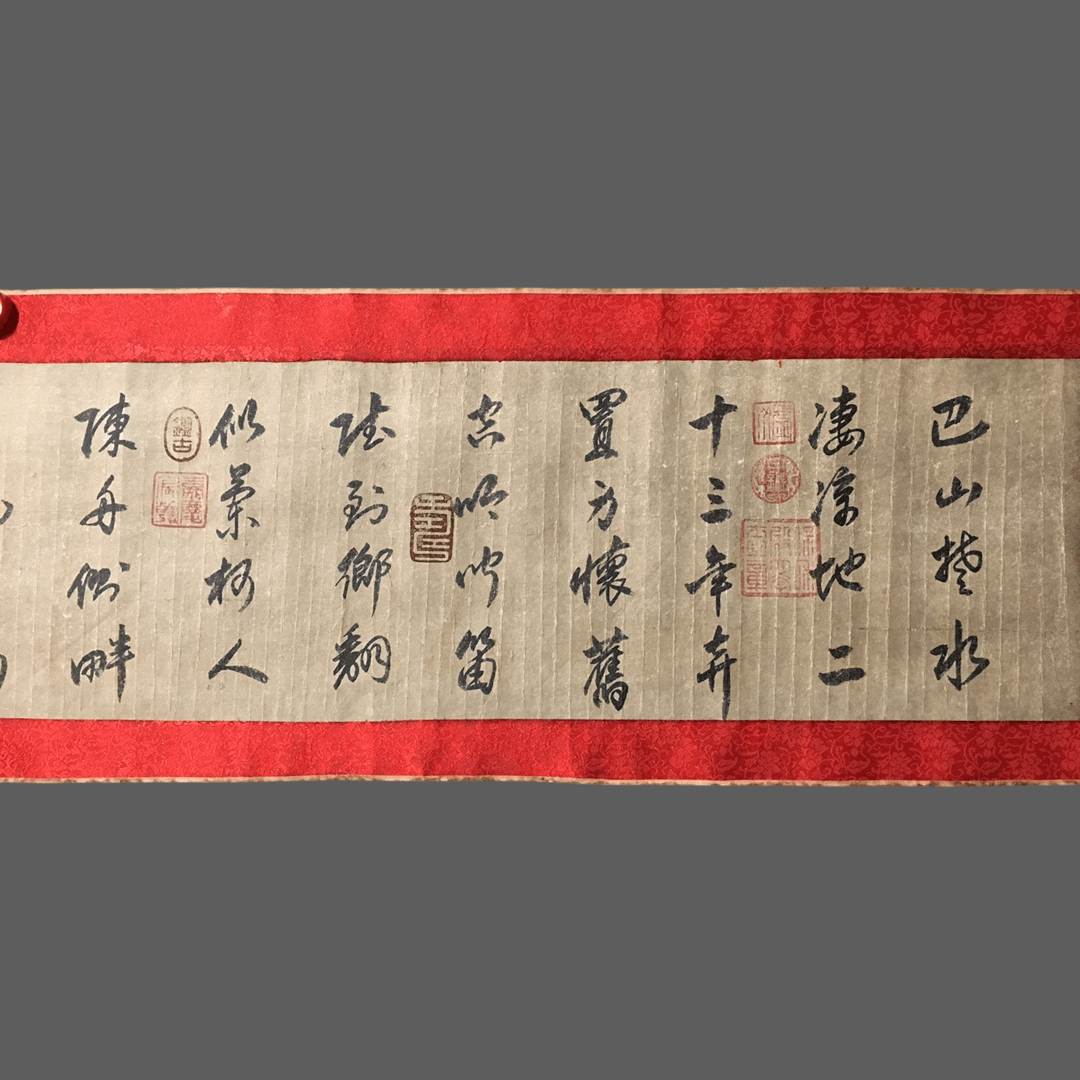 巴山楚水
凄涼地二
十三年弃
置身懷舊
空吟聞笛
賦到鄉翻
似柯人
陳舟側畔
鑑古